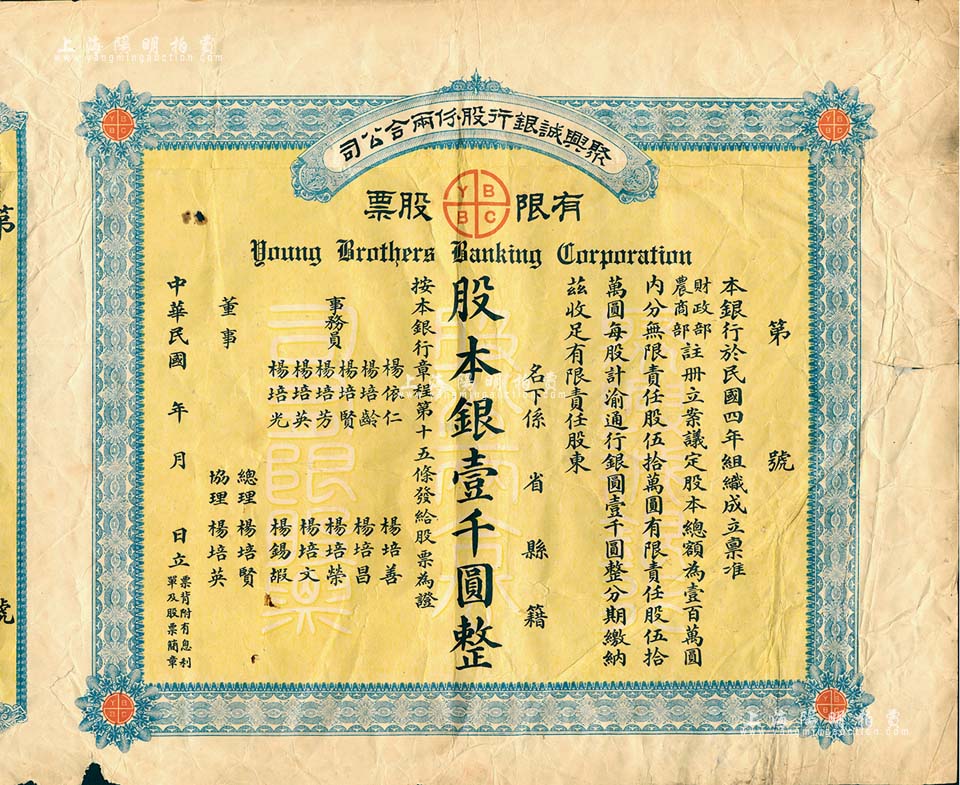 上海陽明拍賣
www.yangmingauction.com
聚興誠銀行股份兩合公司
有限 股票
YBBC
Young Brothers Banking Corporation
第 號
本銀行於民國四年組織成立稟准
財政部
農商部
註册立案議定股本總額為壹百萬圓
內分無限責任股伍拾萬圓有限責任股伍拾
萬圓每股計渝通行銀圓壹千圓整分期繳納
茲收足有限責任股東
名下係 省 縣 籍
股本銀壹千圓整
按本銀行章程第十五條發給股票為證
事務員
楊依仁
楊培齡
楊培賢
楊培芳
楊培英
楊培光
楊培善
楊培昌
楊培榮
楊培文
楊錫嘏
董事
總理 楊培賢
協理 楊培英
中華民國 年 月 日立
票背附有息利
單及股票簡章
第
號
上海陽明拍賣
www.yangmingauction.com
上海陽明拍賣
www.yangmingauction.com